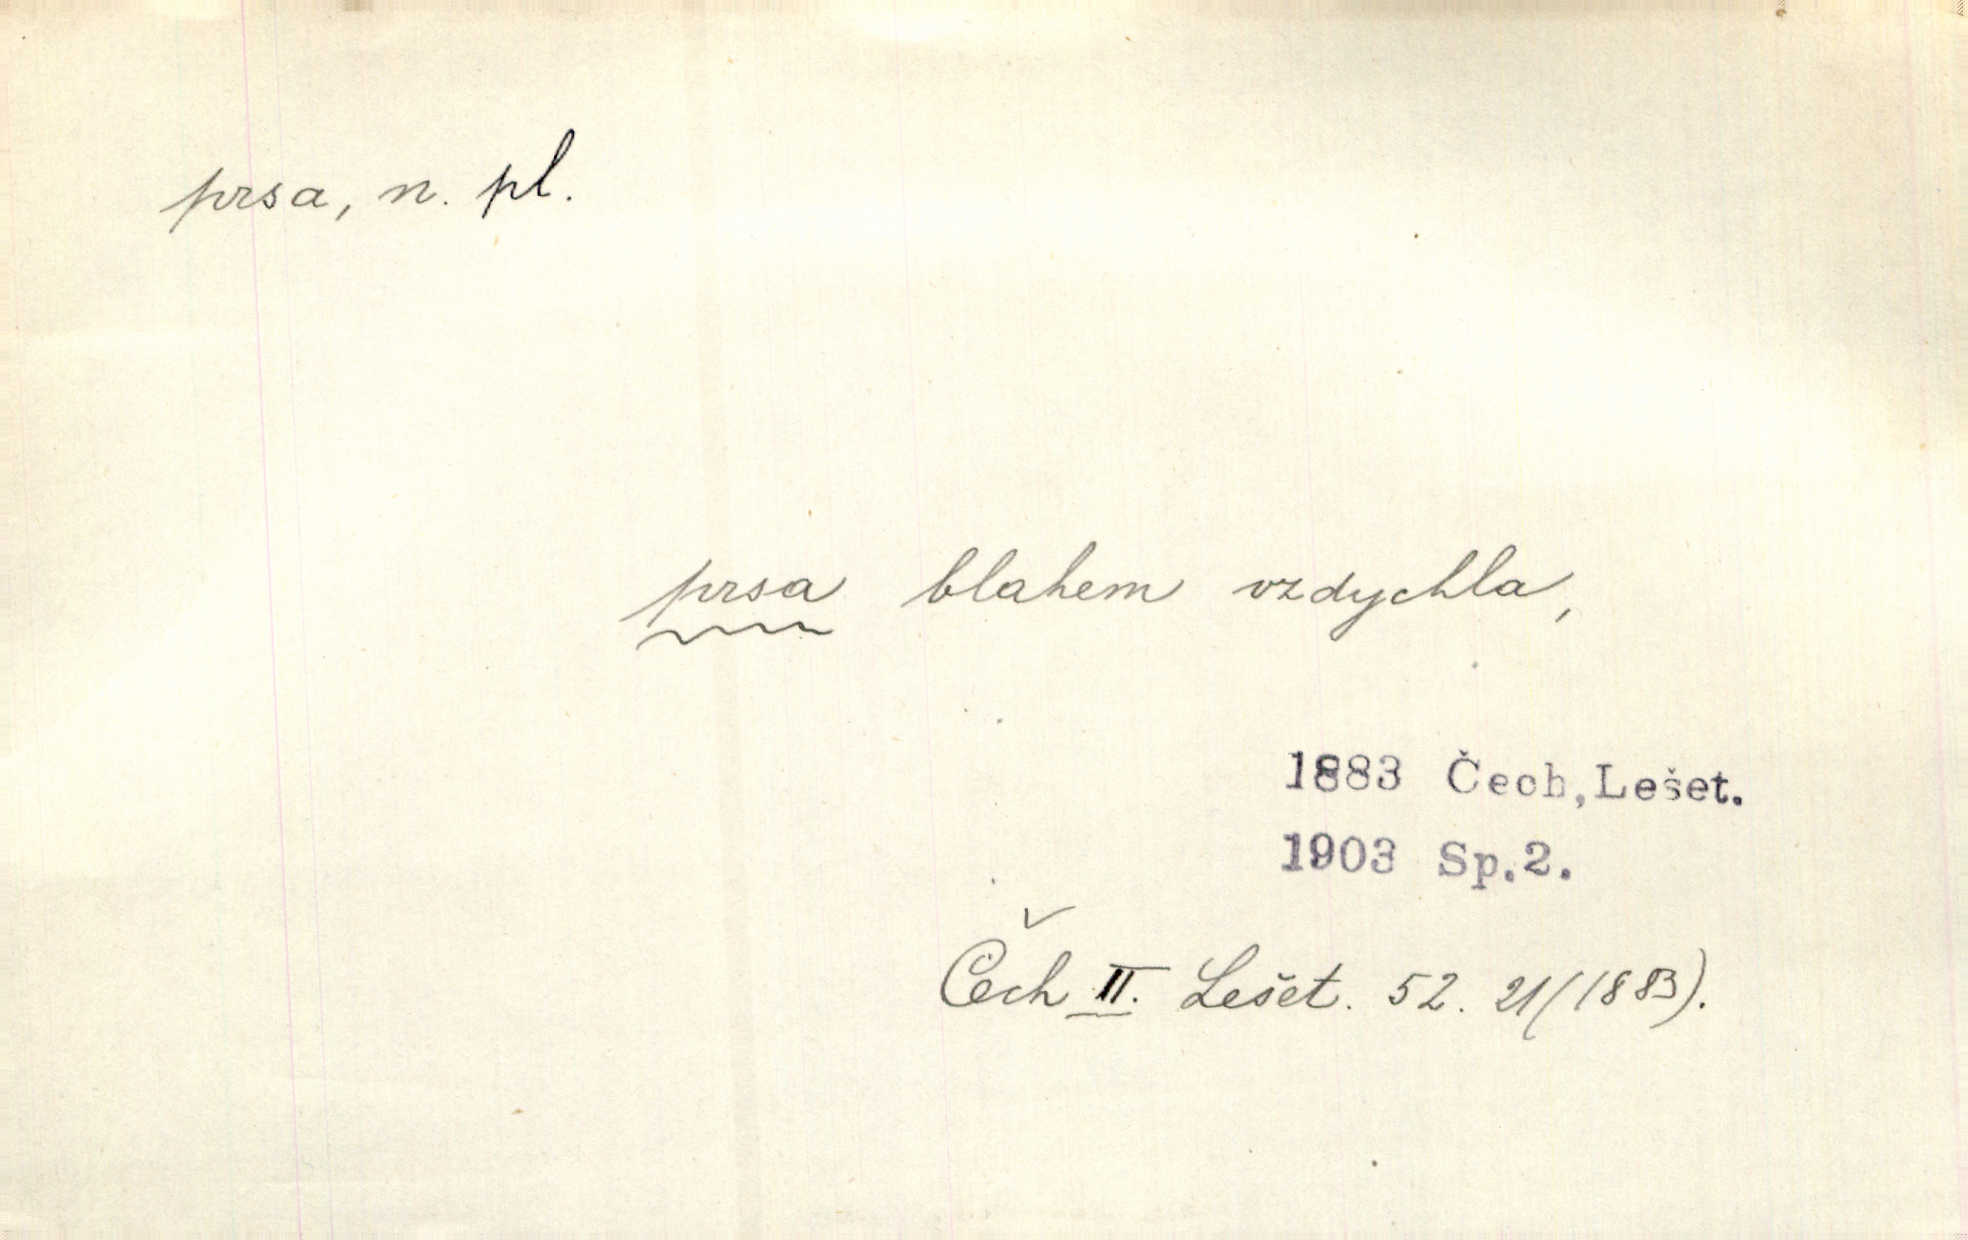 prsa, n. pl.
prsa blahem vzdychla,
1883 Čech, Lešet.
1903 Sp. 2.
Čech II. Lešet. 52. 21 (1883).